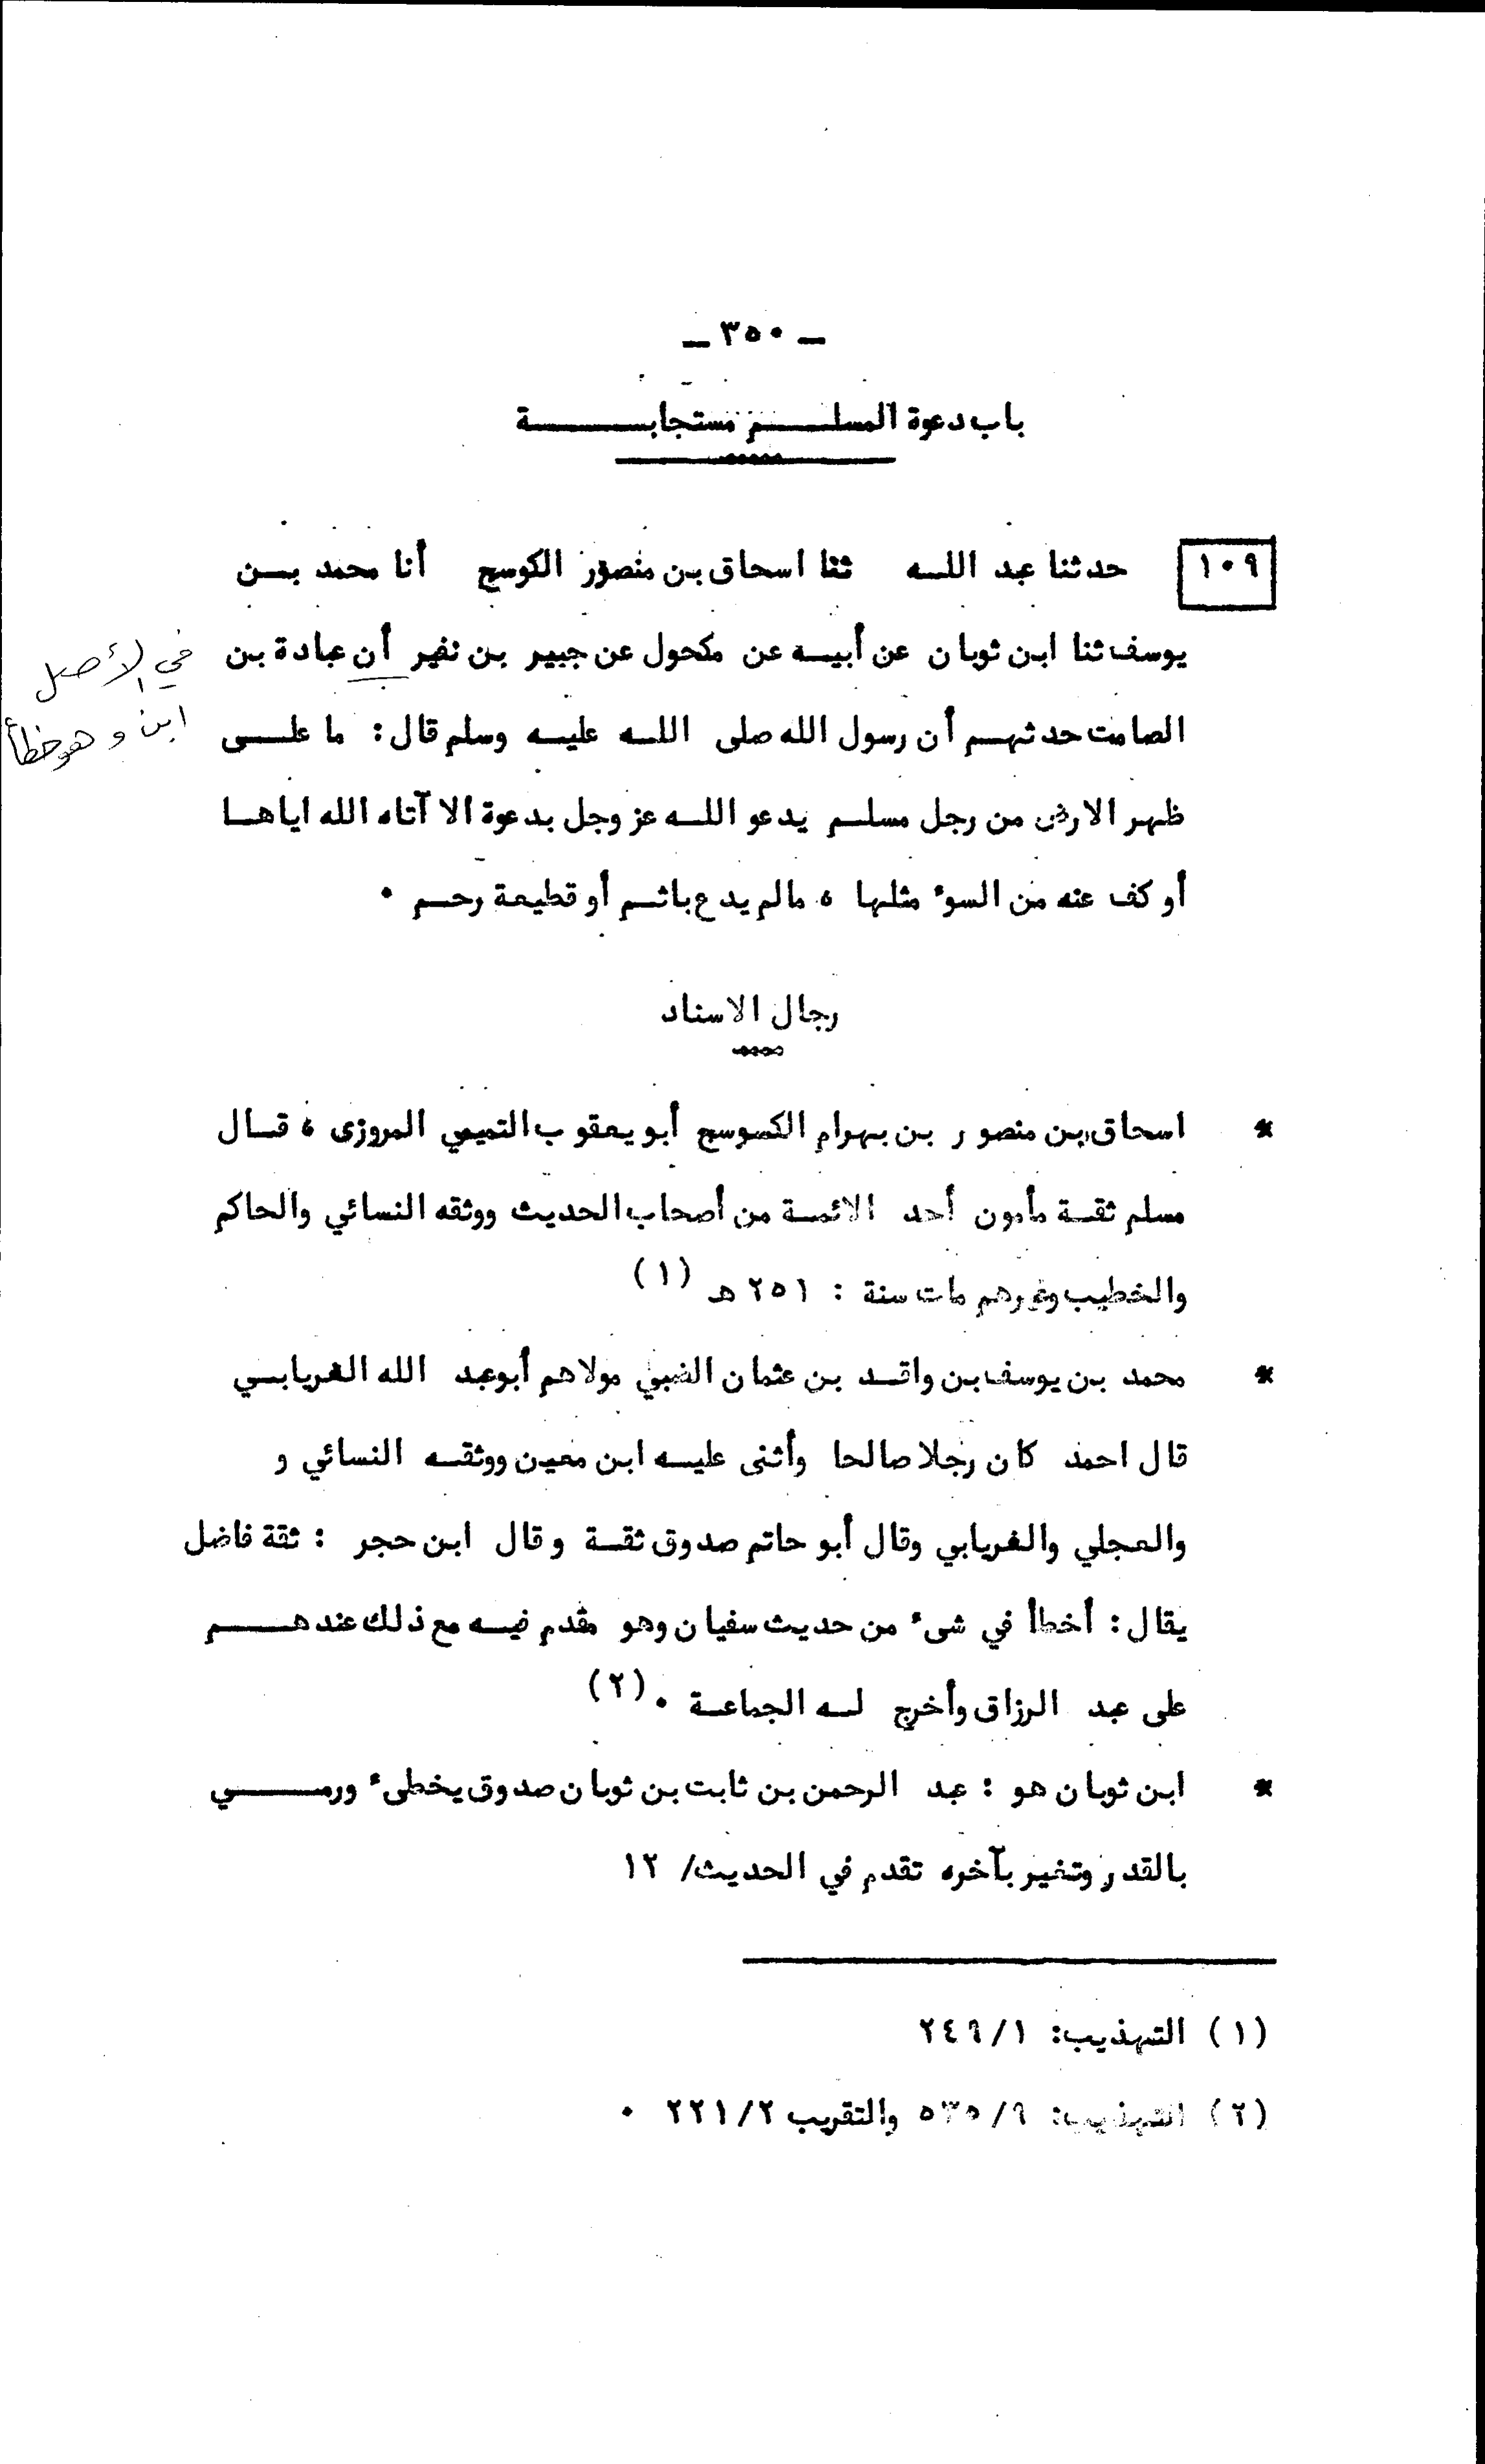 ـ ٣٥٠ ـ
باب دعوة المسلم مستجابة
١٠٩ حدثنا عبد الله ثنا اسحاق بن منصور الكوسج أنا محمد بن
يوسف ثنا ابن ثوبان عن أبيه عن مكحول عن جبير بن نفير أن عبادة بن
في الأصل
ابن وهو خطأ
الصامت حدثهم أن رسول الله صلى الله عليه وسلم قال: ما على
ظهر الارض من رجل مسلم يدعو الله عز وجل بدعوة الا آتاه الله اياها
أو كف عنه من السوء مثلها ، مالم يدع باثم أو قطيعة رحم .
رجال الاسناد
* اسحاق بن منصور بن بهرام الكوسج أبو يعقوب التميمي المروزى ، قال
مسلم ثقة مأمون أحد الائمة من أصحاب الحديث ووثقه النسائي والحاكم
والخطيب وغيرهم مات سنة : ٢٥١ هـ (١)
* محمد بن يوسف بن واقد بن عثمان الضبي مولاهم أبو عبد الله الفريابي
قال احمد كان رجلا صالحا وأثنى عليه ابن معين ووثقه النسائي و
والعجلي والفريابي وقال أبو حاتم صدوق ثقة وقال ابن حجر : ثقة فاضل
يقال : أخطأ في شىء من حديث سفيان وهو مقدم فيه مع ذلك عندهم
على عبد الرزاق وأخرج له الجماعة . (٢)
* ابن ثوبان هو : عبد الرحمن بن ثابت بن ثوبان صدوق يخطىء ورمي
بالقدر وتغير بآخره تقدم في الحديث/ ١٢
(١) التهذيب: ٢٤٩/١
(٢) التهذيب: ٥٣٥/٩ والتقريب ٢٢١/٢ .